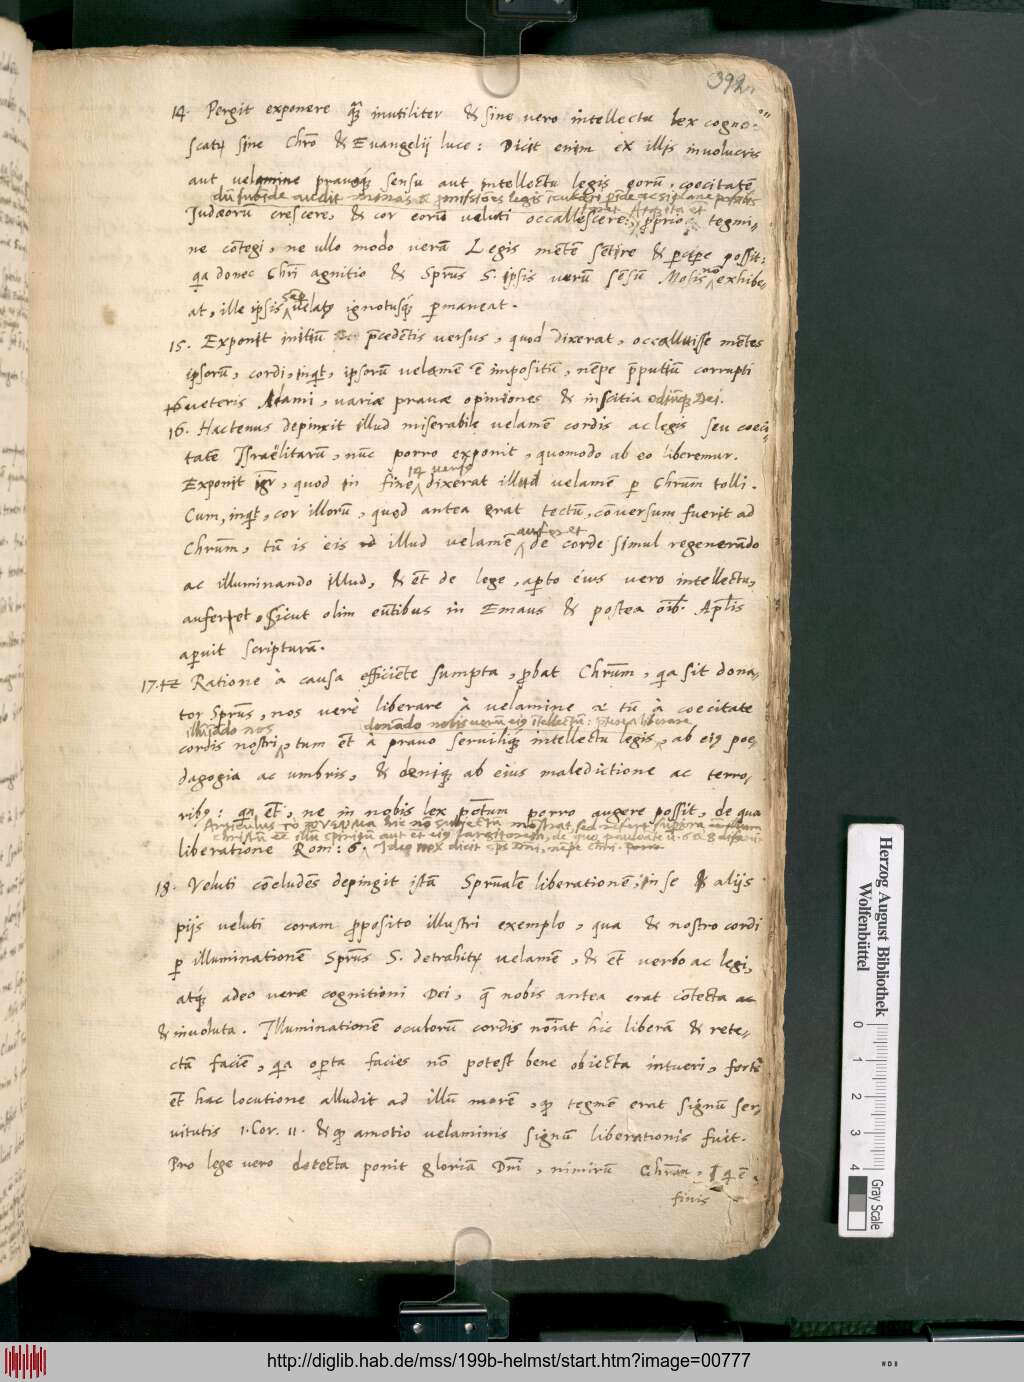 392.
14. Pergit exponere quā inutiliter & sine vero intellectu lex cogno-
scatr sine Chrō & Evangelij luce: Dicit enim ex illis involucris
aut velamine pravoq́ sensu aut intellectu legis eorū, coecitatē
Judæorū crescere, & cor eorū veluti occallescere: proprioq́ tegmi-
ne cōtegi, ne ullo modo verā Legis mētē sētire & pcipe possit:
qa donec Chri agnitio & Sprūs S. ipsis verū sēsū Mosis nō exhibe-
at, ille ipsis velatq ignotusq́ pmaneat.
15. Exponit initiū pcedētis versus, quod dixerat, occalluisse mētes
ipsorū, cordi, inqt, ipsorū velamē ē impositū, nēpe pputiū corrupti
veteris Adami, variæ pravæ opiniones & inscitia Dei.
16. Hactenus depinxit illud miserabile velamē cordis ac legis seu coeci-
tatē Israëlitarū, nūc porro exponit, quomodo ab eo liberemur.
14 verso
Exponit igr, quod in fine dixerat illud velamē p Chrūm tolli.
Cum, inqt, cor illorū, quod antea erat tectū, cōversum fuerit ad
aufer et
Chrūm, tū is eis illud velamē de corde simul regenerādo
ac illuminando illud, & ēt de lege, apto eius vero intellectu,
auferet. Sicut olim eūtibus in Emaus & postea oīb. Aplis
apuit scripturā.
17. Ratione à causa efficiēte sumpta, pbat Chrūm, qa sit dona-
tor Sprūs, nos verè liberare à velamine & tū à coecitate
illuīado nos donādo nobis verū eiq ītellectū: liberare
cordis nostri, tum ēt à pravo serviliq́ intellectu legis, ab eiq poe-
dagogia ac umbris, & deniq́ ab eius maledictione ac terro-
ribq: qa ēt, ne in nobis lex pctum porro augere possit, de qua
liberatione Rom: 6. Ideo mox dicit sps Dni, nēpe Chri. porro
18. Veluti cōcludēs depingit istā Sprūalē liberationē, in se & alijs
pijs veluti coram pposito illustri exemplo, qua & nostro cordi
p illuminationē Sprūs S. detrahitr velamē, & ēt verbo ac legi,
atq́ adeo veræ cognitioni Dei, q̄ nobis antea erat cōtecta ac
& involuta. Illuminationē oculorū cordis noīat hic liberā & rete-
ctā faciē, qa opta facies nō potest bene obiecta intueri, fortè
ēt hac locutione alludit ad illū morē, qp tegmē erat signū ser-
vitutis 1. Cor. 11. & qp amotio velaminis signū liberationis fuit.
Pro lege vero detecta ponit gloriā Dnī, nimirū Chrūm, qi ē
finis
Herzog August Bibliothek
Wolfenbüttel
0 1 2 3 4
Gray Scale
http://diglib.hab.de/mss/199b-helmst/start.htm?image=00777
WDB